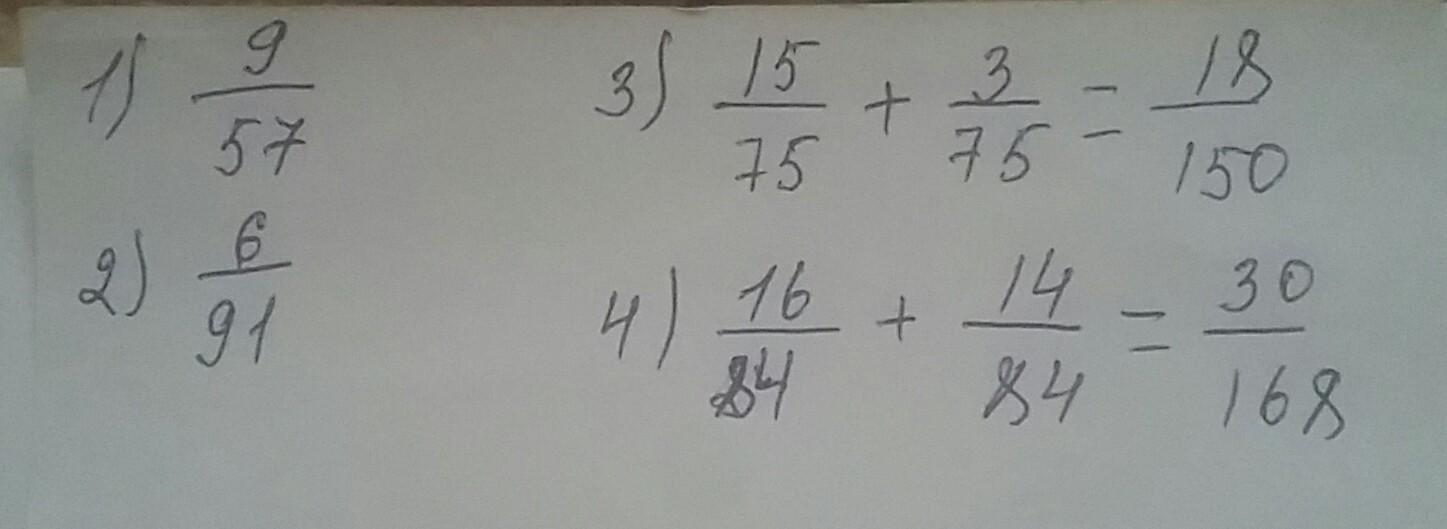 1) 9/57
2) 6/91
3) 15/75 + 3/75 = 18/150
4) 16/84 + 14/84 = 30/168